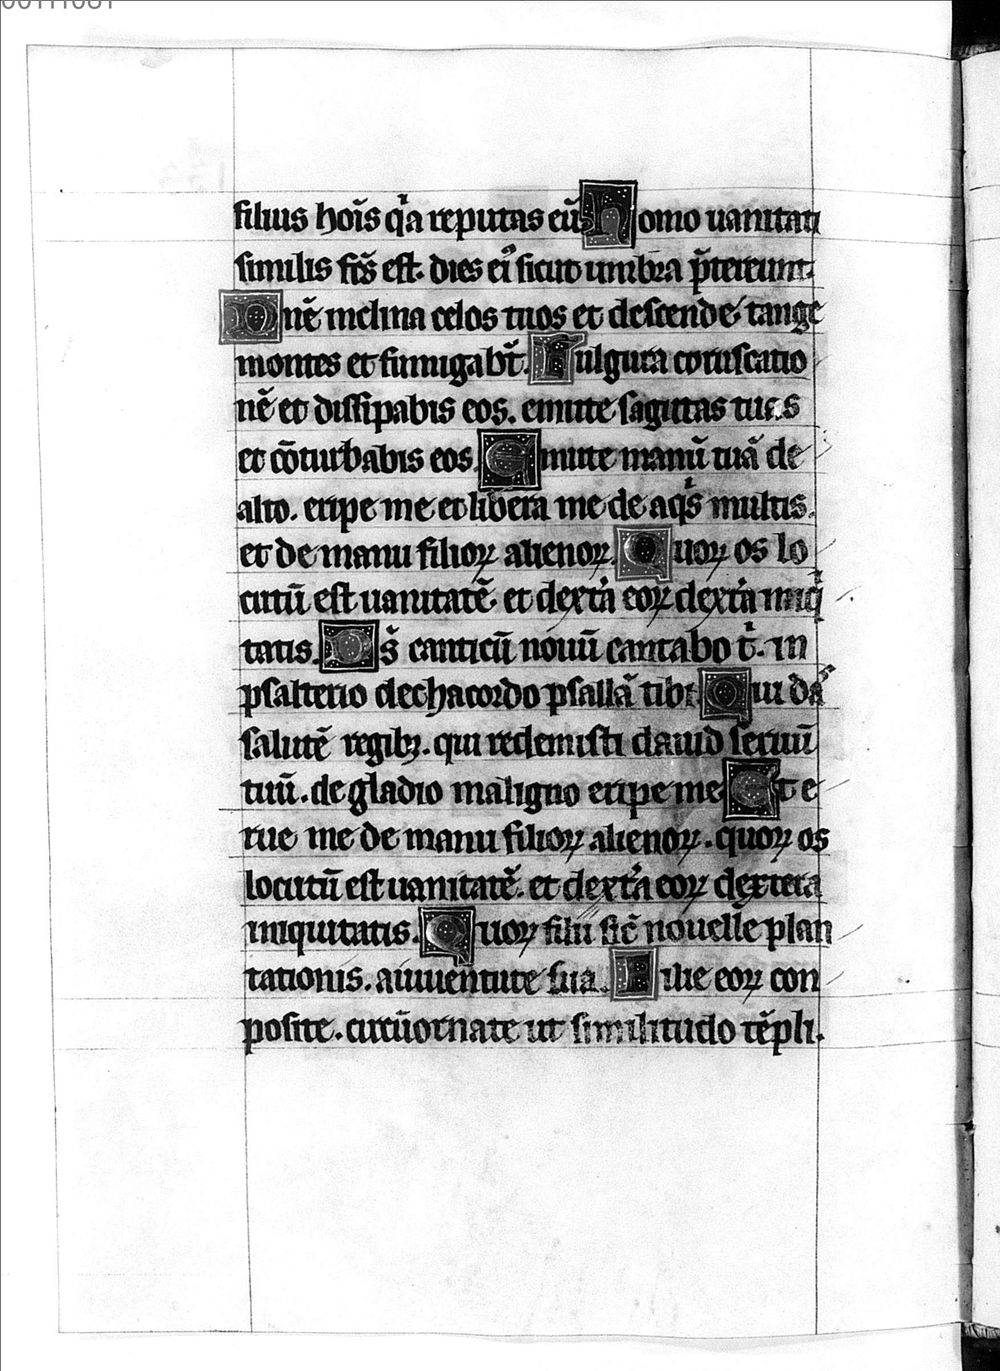 filius hoīs qͥa reputas eū Homo uanitati
similis fcs̄ est. dies eiꝰ sicut umbra p̄tereunt.
Dn̄e inclina celos tuos et descende. tange
montes et fumigabt̄. Fulgura coruscatio
nē et dissipabis eos. emitte sagittas tuas
et cōturbabis eos. Emitte manū tuā de
alto. eripe me et libera me de aqͥs multis.
et de manu filioꝝ alienoꝝ. Quoꝝ os lo
cutū est uanitatē. et dext̓a eoꝝ dext̓a iniqͥ
tatis. Ds̄ canticū nouū cantabo tͥ. in
psalterio dechacordo psallā tibi. Qui das
salutē regibꝫ. qui redemisti dauid seruū
tuū. de gladio maligno eripe me Et e
rue me de manu filioꝝ alienoꝝ. quoꝝ os
locutū est uanitatē. et dext̓a eoꝝ dextera
iniquitatis. Quoꝝ filii sic̄ nouelle plan
tationis. aiuuentute sua. Filie eoꝝ con
posite. circūornate ut similitudo tēpli.